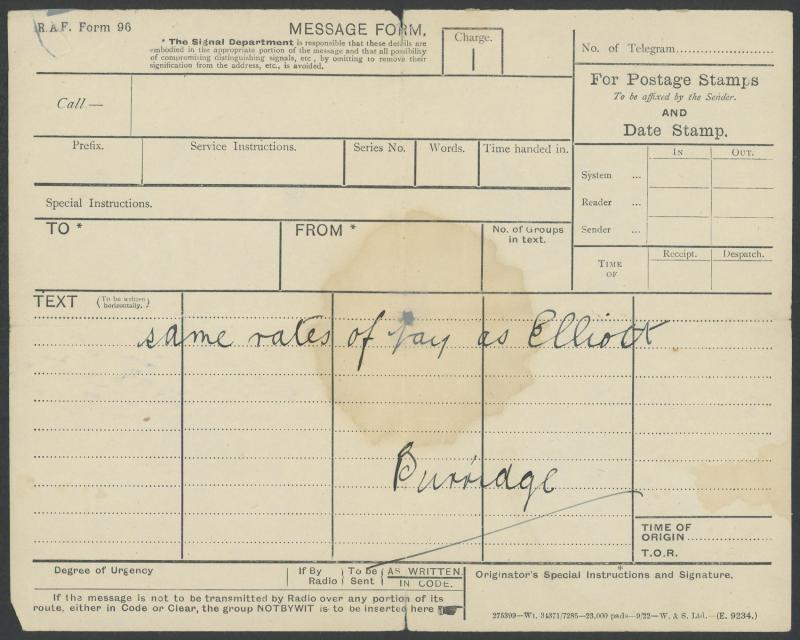 R.A.F. Form 96
MESSAGE FORM.
* The Signal Department is responsible that these details are
embodied in the appropriate portion of the message and that all possibility
of compromising distinguishing signals, etc., by omitting to remove their
signification from the address, etc., is avoided.
Charge.
No. of Telegram
For Postage Stamps
To be affixed by the Sender.
AND
Date Stamp.
Call—
Prefix.
Service Instructions.
Series No.
Words.
Time handed in.
IN
OUT.
System ...
Reader ...
Sender ...
Special Instructions.
TO *
FROM *
No. of Groups
in text.
TIME
OF
Receipt.
Despatch.
TEXT (To be written
horizontally.)
same rates of pay as Elliott
Burridge
TIME OF
ORIGIN
T.O.R.
Degree of Urgency
If By
Radio
To be
Sent
AS WRITTEN.
IN CODE.
Originator's Special Instructions and Signature.*
If the message is not to be transmitted by Radio over any portion of its
route, either in Code or Clear, the group NOTBYWIT is to be inserted here
275399—Wt. 34371/7285—23,000 pads—9/22—W. & S. Ltd.—(E. 9234.)